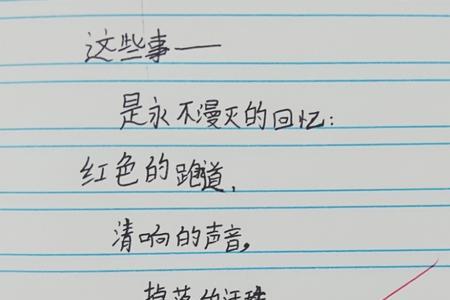 这些事——
是永不漫灭的回忆:
红色的跑道,
清响的声音,
掉落的汗珠